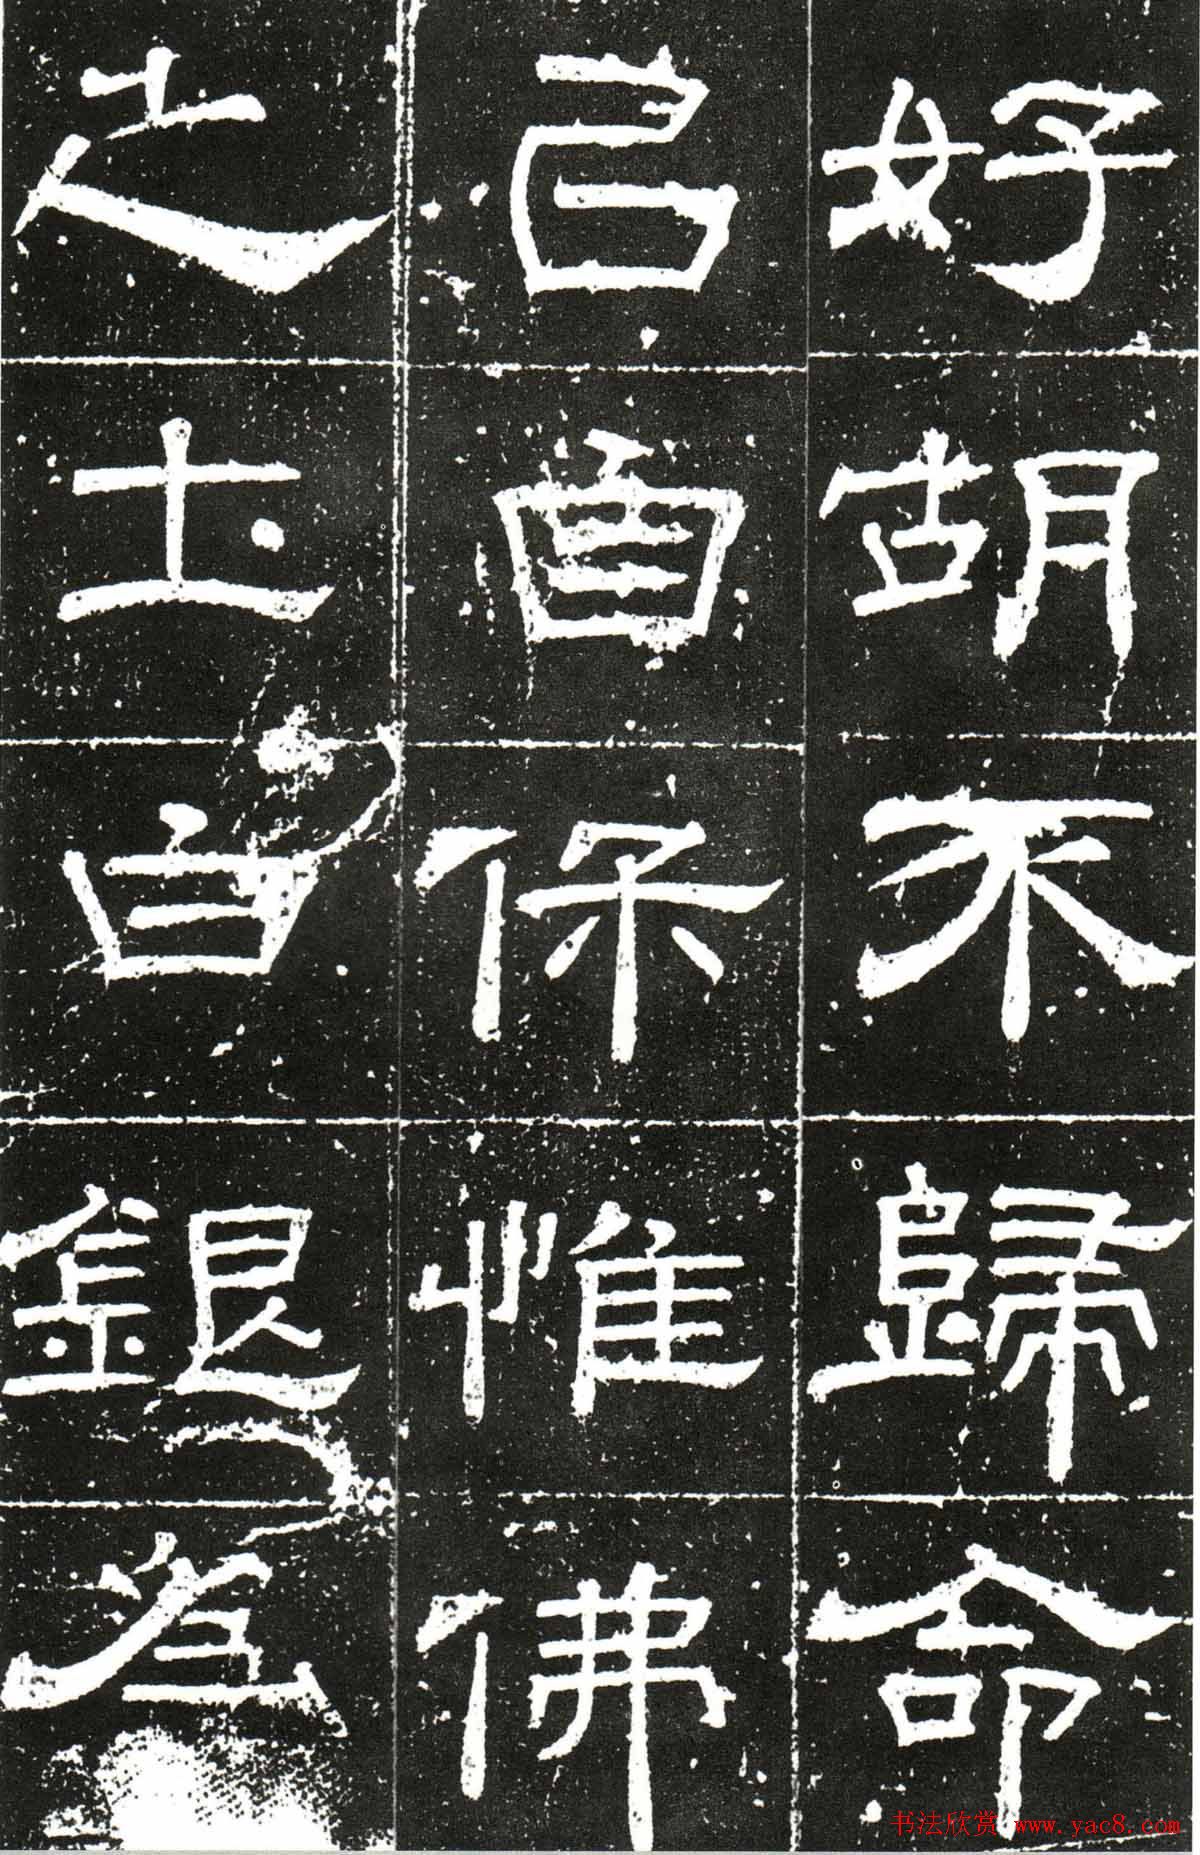 好胡不歸命
己自保惟佛
之圡白銀為
书法欣赏 www.yac8.com